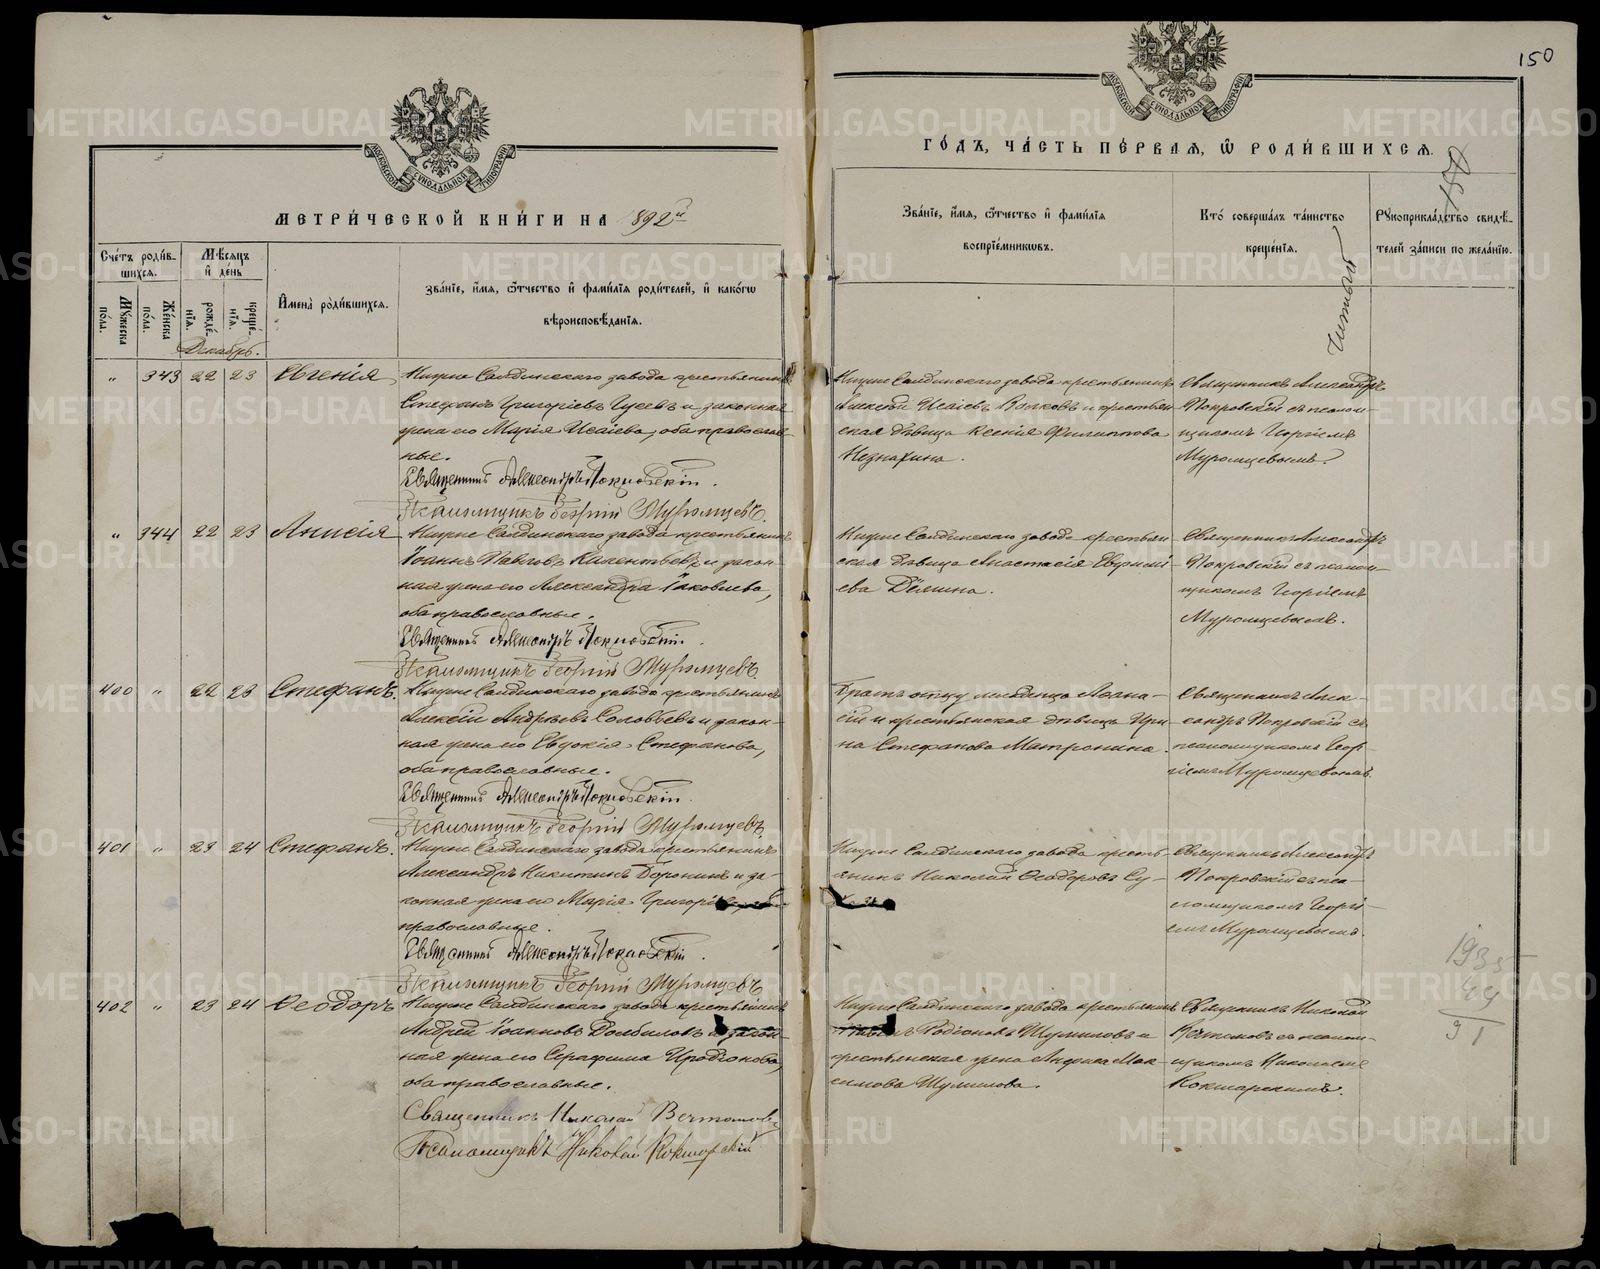 150
МОСКОВСКОЙ СѴНОДАЛЬНОЙ ТИПОГРАФІИ
МОСКОВСКОЙ СѴНОДАЛЬНОЙ ТИПОГРАФІИ
МЕТРИ́ЧЕСКОЙ КНИ́ГИ НА 1892 й
ГО́ДЪ, ЧА́СТЬ ПЕ́РВАЯ, Ѡ РОДИ́ВШИХСЯ.
150
читый
Сче́тъ роди́в-
шихся.
Мѣ́сяцъ
и҆ де́нь
Му́жеска
по́ла.
Же́нска
по́ла.
рожде́-
нїя.
креще́-
нїя.
И҆мена̀ роди́вшихся.
Зва́нїе, и҆́мя, ѻ҆́тчество и҆ фами́лїя роди́телей, и҆ како́гѡ
вѣроисповѣ́данїя.
Зва́нїе, и҆́мя, ѻ҆́тчество и҆ фами́лїя
воспрїе́мникѡвъ.
Кто̀ соверша́лъ та́инство
креще́нїя.
Рꙋкоприкла́дство свидѣ́-
телей за́писи по жела́нїю.
Декабрь.
„ 343 22 23 Евгенія
Нижне Салдинскаго завода крестьянинъ
Стефанъ Григоріевъ Гусевъ и законная
жена его Марія Исаіева, оба православ-
ные.
Священникъ Александръ Покровскій.
Псаломщикъ Георгій Муромцевъ.
Нижне Салдинскаго завода крестьянинъ
Алексій Исаіевъ Волковъ и крестьян-
ская дѣвица Ксенія Филиппова
Незнахина.
Священникъ Александръ
Покровскій съ псалом-
щикомъ Георгіемъ
Муромцевымъ.
„ 344 22 23 Анисія
Нижне Салдинскаго завода крестьянинъ
Іоаннъ Павловъ Килентьевъ и закон-
ная жена его Александра Іаковлева,
оба православные.
Священникъ Александръ Покровскій.
Псаломщикъ Георгій Муромцевъ.
Нижне Салдинскаго завода крестьян-
ская дѣвица Анастасія Евфимі-
ева Дёмина.
Священникъ Александръ
Покровскій съ псалом-
щикомъ Георгіемъ
Муромцевымъ.
400 „ 22 23 Стефанъ.
Нижне Салдинскаго завода крестьянинъ
Алексій Андреевъ Соловьевъ и закон-
ная жена его Евдокія Стефанова,
оба православные.
Священникъ Александръ Покровскій.
Псаломщикъ Георгій Муромцевъ.
Братъ отцу младенца Афана-
сій и крестьянская дѣвица Ири-
на Стефанова Матронина.
Священникъ Алек-
сандръ Покровскій съ
псаломщикомъ Геор-
гіемъ Муромцевымъ.
401 „ 23 24 Стефанъ.
Нижне Салдинскаго завода крестьянинъ
Александръ Никитинъ Воронинъ и за-
конная жена его Марія Григорьева,
православные.
Священникъ Александръ Покровскій.
Псаломщикъ Георгій Муромцевъ
Нижне Салдинскаго завода кресть-
янинъ Николай Ѳеодоровъ Су-
Священникъ Александръ
Покровскій съ пса-
ломщикомъ Георгі-
емъ Муромцевымъ.
402 „ 23 24 Ѳеодоръ
Нижне Салдинскаго завода крестьянинъ
Андрей Іоанновъ Долбиловъ и закон-
ная жена его Серафима Иродіонова,
оба православные.
Священникъ Николай Вечтомовъ
Псаломщикъ Николай Кокшарскій
Нижне Салдинскаго завода крестьянинъ
Родіоновъ Шумиловъ и
крестьянская жена Анфиса Мак-
симова Шумилова.
Священникъ Николай
Вечтомовъ съ псалом-
щикомъ Николаемъ
Кокшарскимъ.
1935
44
91
METRIKI.GASO-URAL.RU